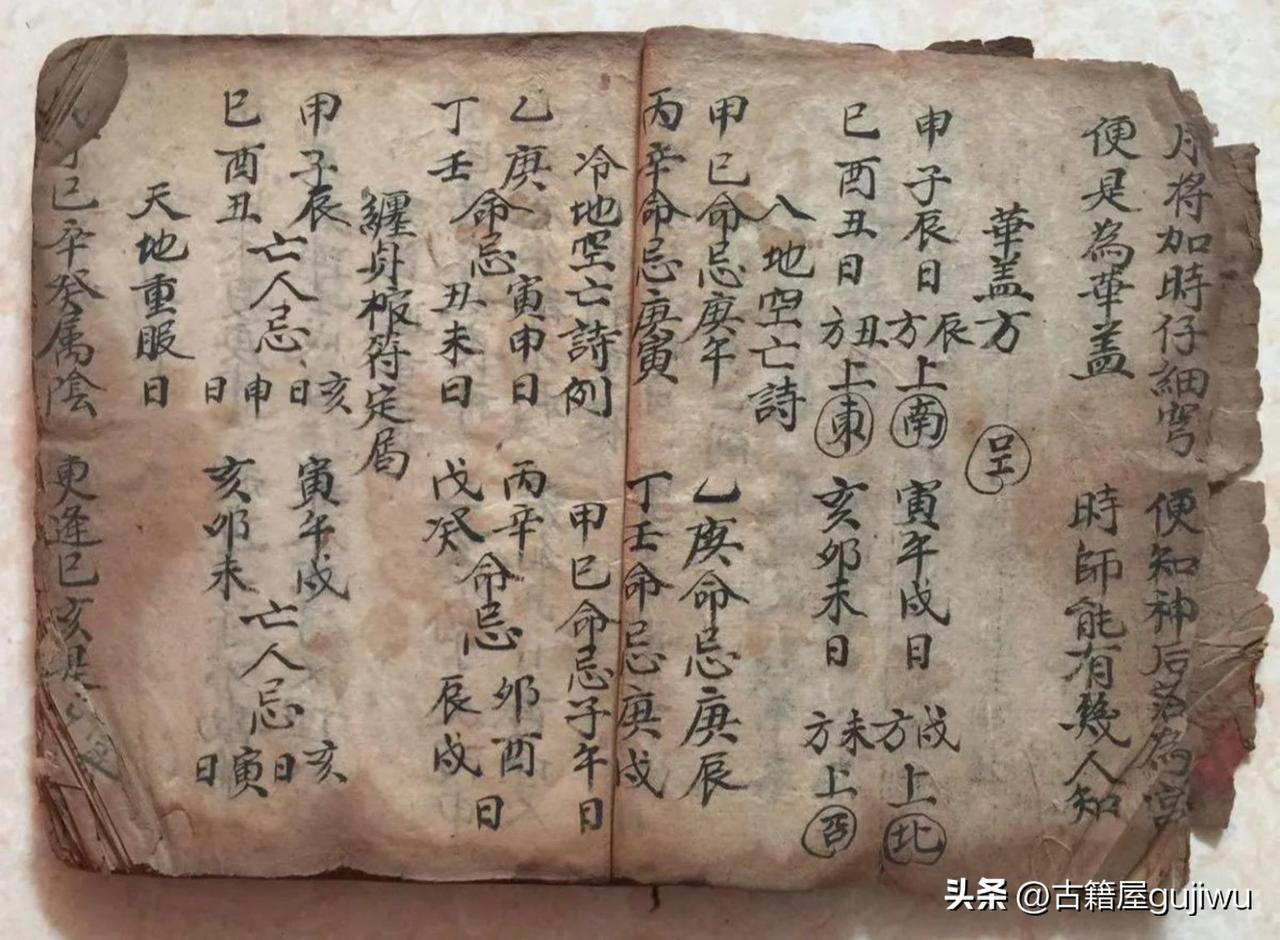 月将加時仔細穹 便知神后落為宮
便是為華盖 時師能有幾人知
華盖方
申子辰日 辰方上南 寅午戌日 戌方上北
巳酉丑日 丑方上東 亥卯未日 未方上西
八地空亡詩
甲巳命忌庚午 乙庚命忌庚辰
丙辛命忌庚寅 丁壬命忌庚戌
冷地空亡詩例 甲巳命忌子午日
乙庚命忌寅申日 丙辛命忌卯酉日
丁壬命忌丑未日 戊癸命忌辰戌日
纏身棺符定局
甲子辰亡人忌亥日 寅午戌亡人忌亥日
巳酉丑亡人忌申日 亥卯未亡人忌寅日
天地重服日
巳辛癸属陰 更逢巳亥是
头条 @古籍屋gujiwu